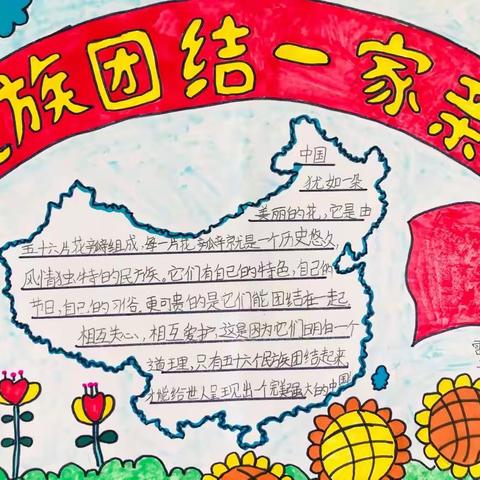 族团结一家亲
中国
犹如一朵
美丽的花,它是由
五十六片花瓣组成,每一片花瓣就是一个历史悠久,
风情独特的民族。它们有自己的特色,自己的
节日,自己的习俗。更可贵的是它们能团结在一起
相互关心,相互爱护,这是因为它们明白一个
道理,只有五十六个民族团结起来,
才能给世人呈现出一个完美强大的中国